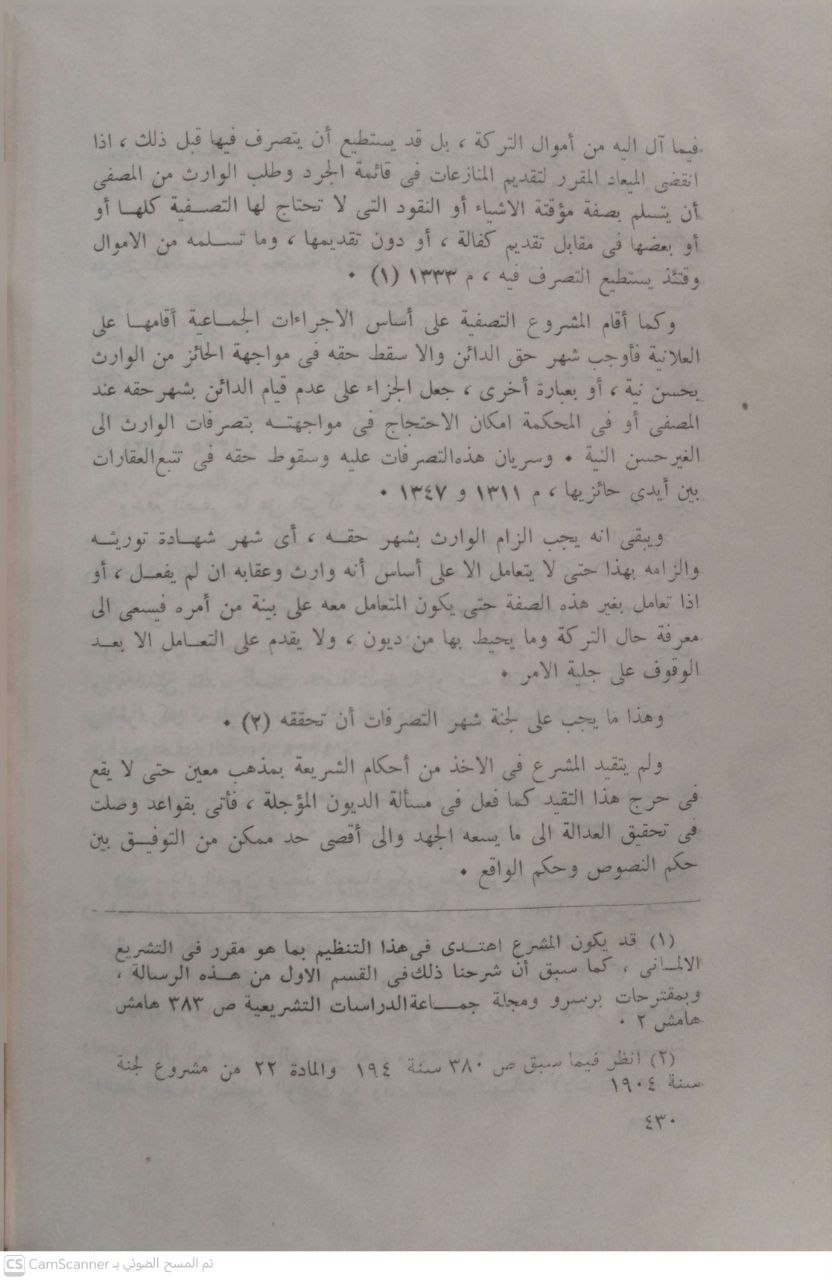 فيما آل اليه من أموال التركة ، بل قد يستطيع أن يتصرف فيها قبل ذلك ، اذا
انقضى الميعاد المقرر لتقديم المنازعات فى قائمة الجرد وطلب الوارث من المصفى
أن يتسلم بصفة مؤقتة الاشياء أو النقود التى لا تحتاج لها التصفية كلها أو
أو بعضها فى مقابل تقديم كفالة ، أو دون تقديمها ، وما تسلمه من الاموال
وقتئذ يستطيع التصرف فيه ، م ١٣٣٣ (١) ٠
وكما أقام المشروع التصفية على أساس الاجراءات الجماعية أقامها على
العلانية فأوجب شهر حق الدائن والا سقط حقه فى مواجهة الحائز من الوارث
بحسن نية ، أو بعبارة أخرى ، جعل الجزاء على عدم قيام الدائن بشهر حقه عند
المصفى أو فى المحكمة امكان الاحتجاج فى مواجهته بتصرفات الوارث الى
الغير حسن النية ٠ وسريان هذه التصرفات عليه وسقوط حقه فى تتبع العقارات
بين أيدى حائزيها ، م ١٣١١ و ١٣٤٧ ٠
ويبقى انه يجب الزام الوارث بشهر حقه ، أى شهر شهادة توريثه
والزامه بهذا حتى لا يتعامل الا على أساس أنه وارث وعقابه ان لم يفعل ، أو
اذا تعامل بغير هذه الصفة حتى يكون المتعامل معه على بينة من أمره فيسعى الى
معرفة حال التركة وما يحيط بها من ديون ، ولا يقدم على التعامل الا بعد
الوقوف على جلية الامر ٠
وهذا ما يجب على لجنة شهر التصرفات أن تحققه (٢) ٠
ولم يتقيد المشرع فى الاخذ من أحكام الشريعة بمذهب معين حتى لا يقع
فى حرج هذا التقيد كما فعل فى مسألة الديون المؤجلة ، فأتى بقواعد وصلت
فى تحقيق العدالة الى ما يسعه الجهد والى أقصى حد ممكن من التوفيق بين
حكم النصوص وحكم الواقع ٠
(١) قد يكون المشرع اهتدى فى هذا التنظيم بما هو مقرر فى التشريع
الالمانى ، كما سبق أن شرحنا ذلك فى القسم الاول من هذه الرسالة ،
وبمقترحات برسرو ومجلة جماعة الدراسات التشريعية ص ٣٨٣ هامش
هامش ٢ ٠
(٢) انظر فيما سبق ص ٣٨٠ سنة ١٩٤ والمادة ٢٢ من مشروع لجنة
سنة ١٩٠٤
٤٣٠
CS CamScanner تم المسح الضوئي بـ